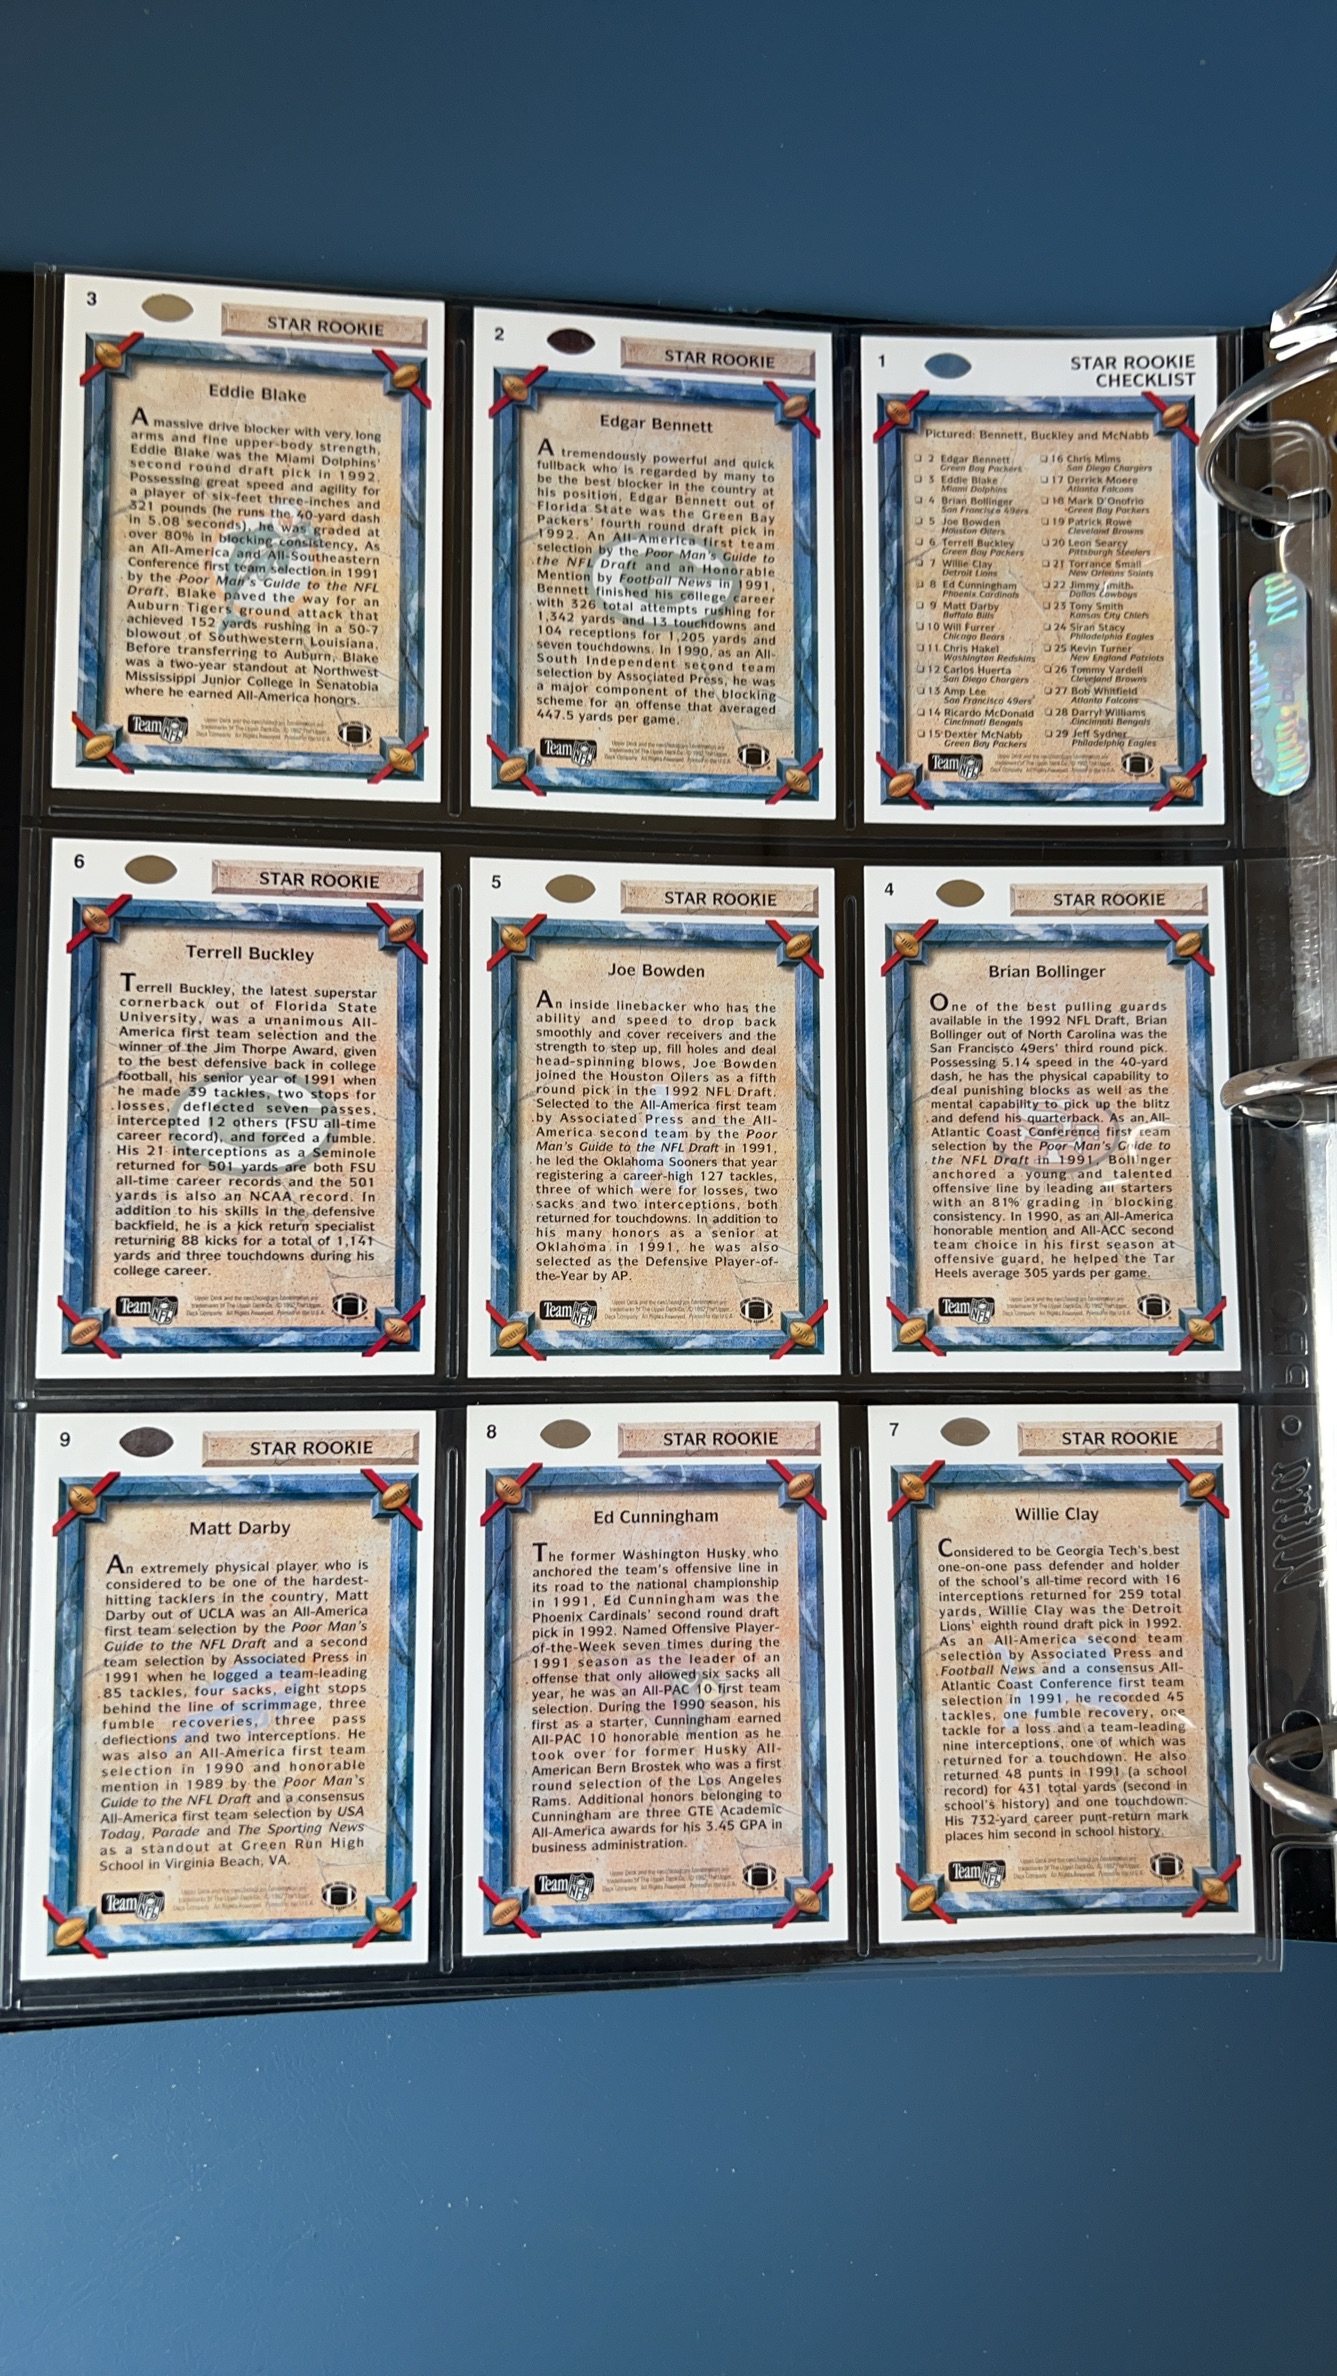 3
STAR ROOKIE
Eddie Blake
A massive drive blocker with very long
arms and fine upper-body strength,
Eddie Blake was the Miami Dolphins'
second round draft pick in 1992.
Possessing great speed and agility for
a player of six-feet three-inches and
321 pounds (he runs the 40-yard dash
in 5.08 seconds), he was graded at
over 80% in blocking consistency. As
an All-America and All-Southeastern
Conference first team selection in 1991
by the Poor Man's Guide to the NFL
Draft, Blake paved the way for an
Auburn Tigers ground attack that
achieved 152 yards rushing in a 50-7
blowout of Southwestern Louisiana.
Before transferring to Auburn, Blake
was a two-year standout at Northwest
Mississippi Junior College in Senatobia
where he earned All-America honors.
Team NFL
2
STAR ROOKIE
Edgar Bennett
A tremendously powerful and quick
fullback who is regarded by many to
be the best blocker in the country at
his position, Edgar Bennett out of
Florida State was the Green Bay
Packers' fourth round draft pick in
1992. An All-America first team
selection by the Poor Man's Guide to
the NFL Draft and an Honorable
Mention by Football News in 1991,
Bennett finished his college career
with 326 total attempts rushing for
1,342 yards and 13 touchdowns and
104 receptions for 1,205 yards and
seven touchdowns. In 1990, as an All-
South Independent second team
selection by Associated Press, he was
a major component of the blocking
scheme for an offense that averaged
447.5 yards per game.
Team NFL
1
STAR ROOKIE
CHECKLIST
Pictured: Bennett, Buckley and McNabb
2 Edgar Bennett
Green Bay Packers
3 Eddie Blake
Miami Dolphins
4 Brian Bollinger
San Francisco 49ers
5 Joe Bowden
Houston Oilers
6 Terrell Buckley
Green Bay Packers
7 Willie Clay
Detroit Lions
8 Ed Cunningham
Phoenix Cardinals
9 Matt Darby
Buffalo Bills
10 Will Furrer
Chicago Bears
11 Chris Hakel
Washington Redskins
12 Carlos Huerta
San Diego Chargers
13 Amp Lee
San Francisco 49ers
14 Ricardo McDonald
Cincinnati Bengals
15 Dexter McNabb
Green Bay Packers
16 Chris Mims
San Diego Chargers
17 Derrick Moore
Atlanta Falcons
18 Mark D'Onofrio
Green Bay Packers
19 Patrick Rowe
Cleveland Browns
20 Leon Searcy
Pittsburgh Steelers
21 Torrance Small
New Orleans Saints
22 Jimmy Smith
Dallas Cowboys
23 Tony Smith
Kansas City Chiefs
24 Siran Stacy
Philadelphia Eagles
25 Kevin Turner
New England Patriots
26 Tommy Vardell
Cleveland Browns
27 Bob Whitfield
Atlanta Falcons
28 Darryl Williams
Cincinnati Bengals
29 Jeff Sydner
Philadelphia Eagles
Team NFL
6
STAR ROOKIE
Terrell Buckley
Terrell Buckley, the latest superstar
cornerback out of Florida State
University, was a unanimous All-
America first team selection and the
winner of the Jim Thorpe Award, given
to the best defensive back in college
football, his senior year of 1991 when
he made 39 tackles, two stops for
losses, deflected seven passes,
intercepted 12 others (FSU all-time
career record), and forced a fumble.
His 21 interceptions as a Seminole
returned for 501 yards are both FSU
all-time career records and the 501
yards is also an NCAA record. In
addition to his skills in the defensive
backfield, he is a kick return specialist
returning 88 kicks for a total of 1,141
yards and three touchdowns during his
college career.
Team NFL
5
STAR ROOKIE
Joe Bowden
An inside linebacker who has the
ability and speed to drop back
smoothly and cover receivers and the
strength to step up, fill holes and deal
head-spinning blows, Joe Bowden
joined the Houston Oilers as a fifth
round pick in the 1992 NFL Draft.
Selected to the All-America first team
by Associated Press and the All-
America second team by the Poor
Man's Guide to the NFL Draft in 1991,
he led the Oklahoma Sooners that year
registering a career-high 127 tackles,
three of which were for losses, two
sacks and two interceptions, both
returned for touchdowns. In addition to
his many honors as a senior at
Oklahoma in 1991, he was also
selected as the Defensive Player-of-
the-Year by AP.
Team NFL
4
STAR ROOKIE
Brian Bollinger
One of the best pulling guards
available in the 1992 NFL Draft, Brian
Bollinger out of North Carolina was the
San Francisco 49ers' third round pick.
Possessing 5.14 speed in the 40-yard
dash, he has the physical capability to
deal punishing blocks as well as the
mental capability to pick up the blitz
and defend his quarterback. As an All-
Atlantic Coast Conference first team
selection by the Poor Man's Guide to
the NFL Draft in 1991, Bollinger
anchored a young and talented
offensive line by leading all starters
with an 81% grading in blocking
consistency. In 1990, as an All-America
honorable mention and All-ACC second
team choice in his first season at
offensive guard, he helped the Tar
Heels average 305 yards per game.
Team NFL
9
STAR ROOKIE
Matt Darby
An extremely physical player who is
considered to be one of the hardest-
hitting tacklers in the country, Matt
Darby out of UCLA was an All-America
first team selection by the Poor Man's
Guide to the NFL Draft and a second
team selection by Associated Press in
1991 when he logged a team-leading
85 tackles, four sacks, eight stops
behind the line of scrimmage, three
fumble recoveries, three pass
deflections and two interceptions. He
was also an All-America first team
selection in 1990 and honorable
mention in 1989 by the Poor Man's
Guide to the NFL Draft and a consensus
All-America first team selection by USA
Today, Parade and The Sporting News
as a standout at Green Run High
School in Virginia Beach, VA.
Team NFL
8
STAR ROOKIE
Ed Cunningham
The former Washington Husky who
anchored the team's offensive line in
its road to the national championship
in 1991, Ed Cunningham was the
Phoenix Cardinals' second round draft
pick in 1992. Named Offensive Player-
of-the-Week seven times during the
1991 season as the leader of an
offense that only allowed six sacks all
year, he was an All-PAC 10 first team
selection. During the 1990 season, his
first as a starter, Cunningham earned
All-PAC 10 honorable mention as he
took over for former Husky All-
American Bern Brostek who was a first
round selection of the Los Angeles
Rams. Additional honors belonging to
Cunningham are three GTE Academic
All-America awards for his 3.45 GPA in
business administration.
Team NFL
7
STAR ROOKIE
Willie Clay
Considered to be Georgia Tech's best
one-on-one pass defender and holder
of the school's all-time record with 16
interceptions returned for 259 total
yards, Willie Clay was the Detroit
Lions' eighth round draft pick in 1992.
As an All-America second team
selection by Associated Press and
Football News and a consensus All-
Atlantic Coast Conference first team
selection in 1991, he recorded 45
tackles, one fumble recovery, one
tackle for a loss and a team-leading
nine interceptions, one of which was
returned for a touchdown. He also
returned 48 punts in 1991 (a school
record) for 431 total yards (second in
school's history) and one touchdown.
His 732-yard career punt-return mark
places him second in school history.
Team NFL